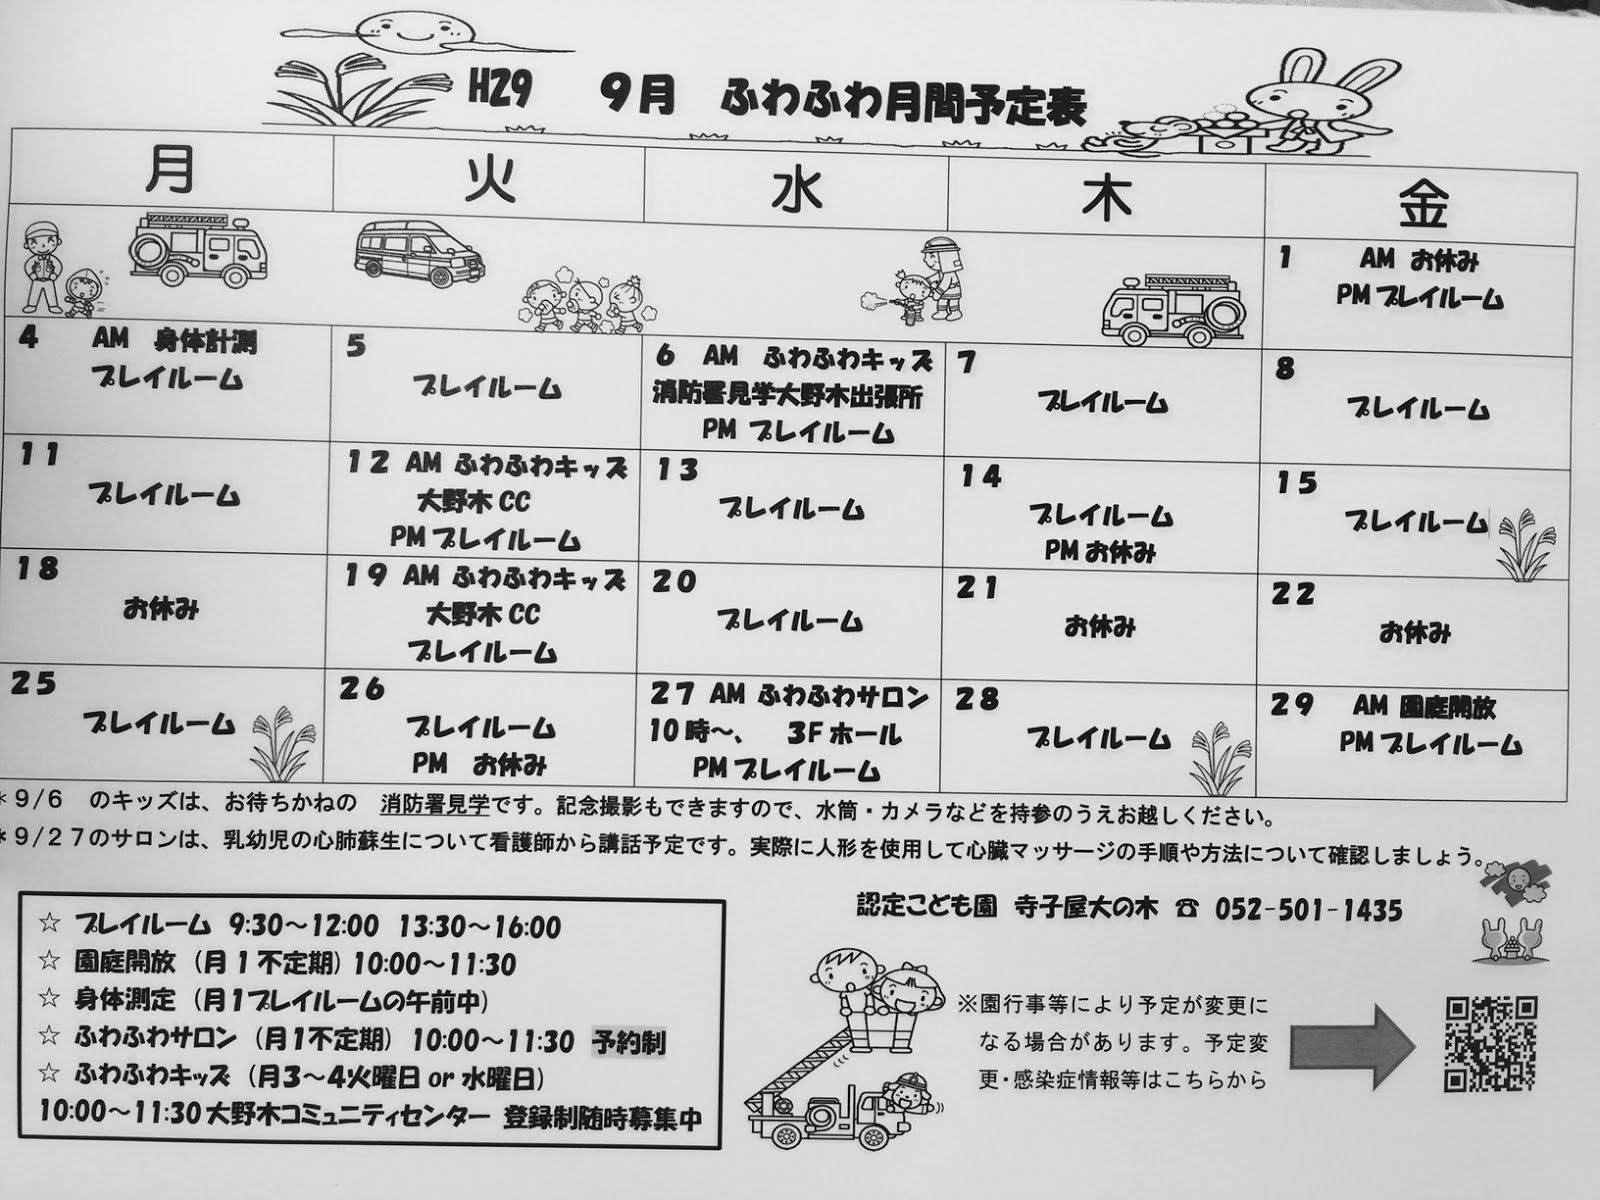 H29 9月 ふわふわ月間予定表
月 火 水 木 金
1 AM お休み
PM プレイルーム
4 AM 身体計測
プレイルーム
5
プレイルーム
6 AM ふわふわキッズ
消防署見学大野木出張所
PM プレイルーム
7
プレイルーム
8
プレイルーム
11
プレイルーム
12 AM ふわふわキッズ
大野木 CC
PM プレイルーム
13
プレイルーム
14
プレイルーム
PM お休み
15
プレイルーム
18
お休み
19 AM ふわふわキッズ
大野木 CC
プレイルーム
20
プレイルーム
21
お休み
22
お休み
25
プレイルーム
26
プレイルーム
PM お休み
27 AM ふわふわサロン
10時～、 3Fホール
PM プレイルーム
28
プレイルーム
29 AM 園庭開放
PM プレイルーム
＊9/6 のキッズは、お待ちかねの 消防署見学です。記念撮影もできますので、水筒・カメラなどを持参のうえお越しください。
＊9/27のサロンは、乳幼児の心肺蘇生について看護師から講話予定です。実際に人形を使用して心臓マッサージの手順や方法について確認しましょう。
☆ プレイルーム 9:30～12:00 13:30～16:00
☆ 園庭開放（月1不定期）10:00～11:30
☆ 身体測定（月1プレイルームの午前中）
☆ ふわふわサロン（月1不定期） 10:00～11:30 予約制
☆ ふわふわキッズ（月3～4火曜日 or 水曜日）
10:00～11:30 大野木コミュニティセンター 登録制随時募集中
認定こども園 寺子屋大の木 ☎ 052-501-1435
※園行事等により予定が変更に
なる場合があります。予定変
更・感染症情報等はこちらから